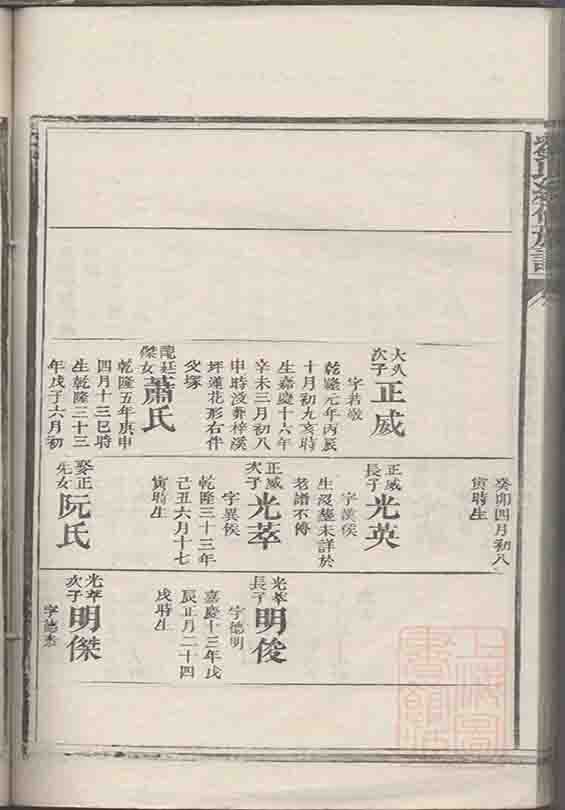 氏續修族譜
大久次子
正威
字若敬
乾隆元年丙辰
十月初九亥時
生嘉慶十六年
辛未三月初八
申時沒葬梓溪
坪蓮花形右件
父塚
蕭氏
乾隆五年庚申
四月十三巳時
生乾隆三十三
年戊子六月初
癸卯四月初八
寅時生
正威長子
光英
字漢侯
生沒墓未詳於
老譜不傳
正威次子
光萃
字異侯
乾隆三十三年
己丑六月十七
寅時生
娶正先女
阮氏
光萃長子
明俊
字德明
嘉慶十三年戊
辰正月二十四
戌時生
光萃次子
明傑
字德杰
上海圖書館藏